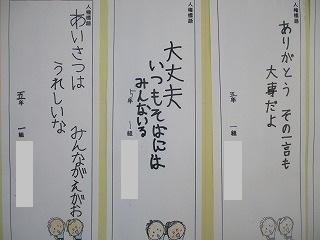 人権標語
ありがとう その一言も
大事だよ
三年 一組
人権標語
大丈夫
いつもそばには
みんないる
5年 1組
人権標語
あいさつは みんながえがお
うれしいな
五年 一組